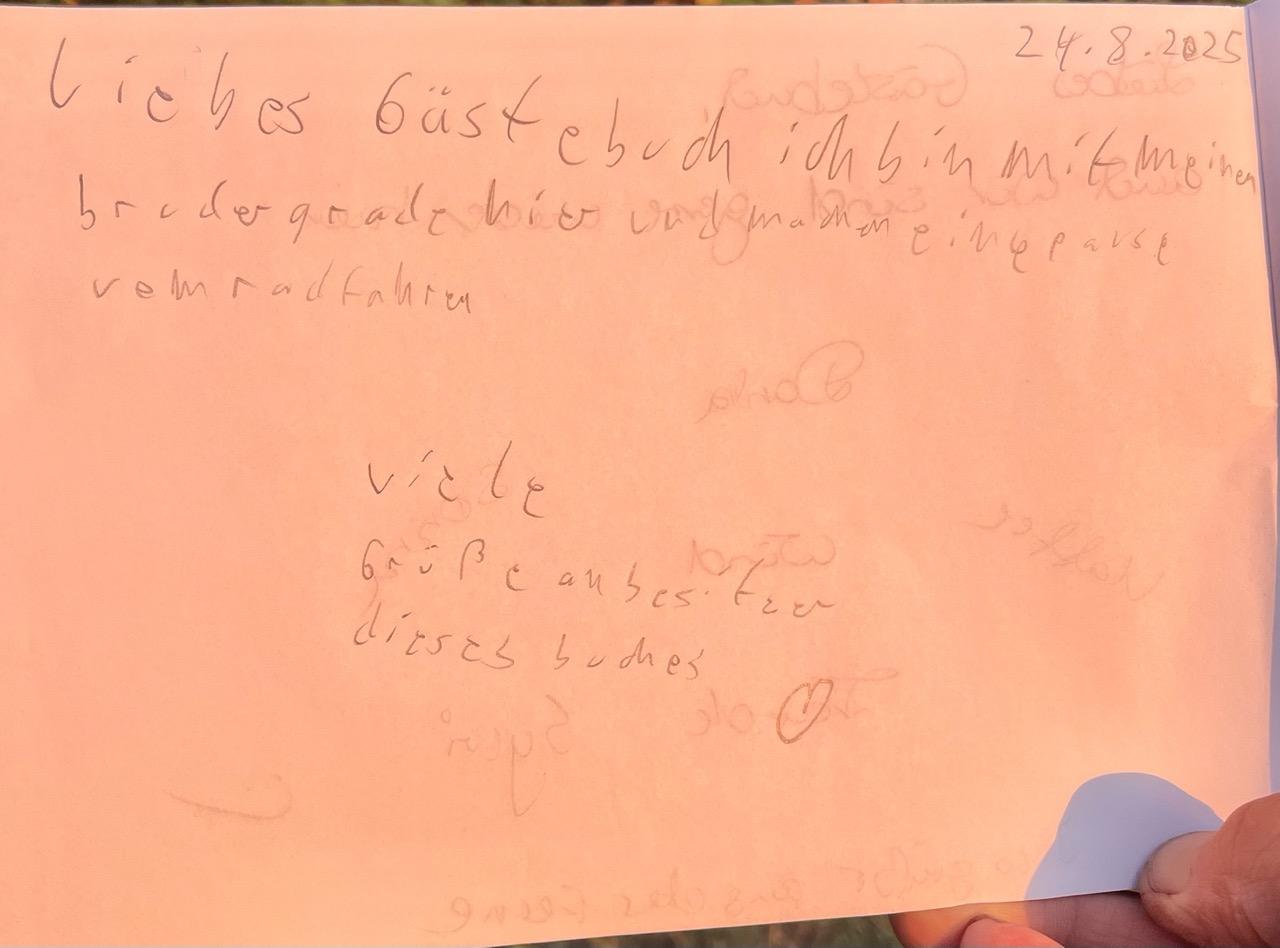 24.8.2025
liebes Gästebuch ich bin mit meinen
bruder grade hier und machen eine pause
vom radfahren
viele
Grüße an besitzer
dieses buches